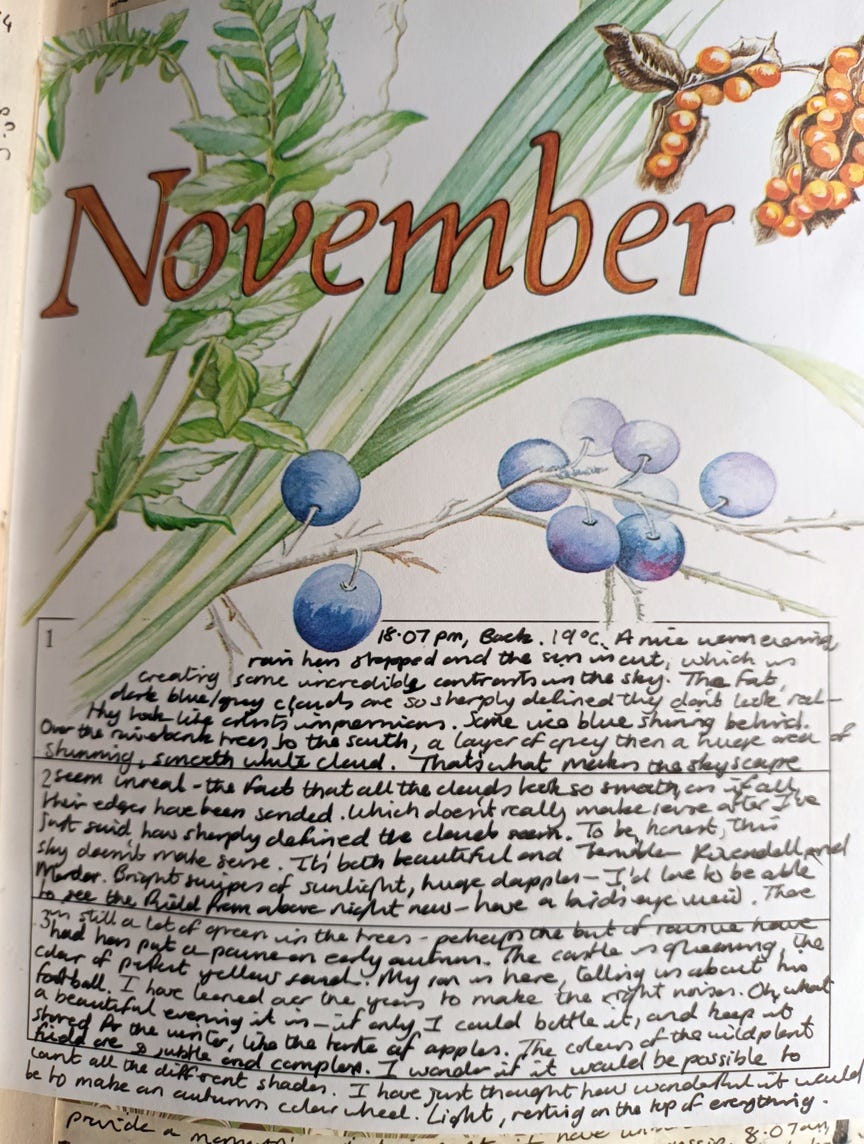 November
1
18.07 pm, Back. 19°C. A nice warm evening,
rain has stopped and the sun is out, which is
creating some incredible contrasts in the sky. The fat,
dark blue/grey clouds are so sharply defined they don't look real –
they look like artists' impressions. Some ice blue shining behind.
Over the riverbank trees to the south, a layer of grey then a huge area of
stunning, smooth white cloud. Thats what makes the skyscape
2 seem unreal – the fact that all the clouds look so smooth, as if all
their edges have been sanded. Which doesn't really make sense after I've
just said how sharply defined the clouds seem. To be honest, this
sky doesn't make sense. It's both beautiful and terrible. Rivendell and
Mordor. Bright swipes of sunlight, huge dapples – I'd love to be able
to see the field from above right now – have a birds eye view. There
3 is still a lot of green in the trees – perhaps the bit of rain we have
had has put a pause on early autumn. The castle is gleaming, the
colour of perfect yellow sand. My son is here, telling us about his
football. I have learned over the years to make the right noises. Oh, what
a beautiful evening it is – if only I could bottle it, and keep it
stored for the winter, like the taste of apples. The colours of the wild plant
field are so subtle and complex. I wonder if it would be possible to
count all the different shades. I have just thought how wonderful it would
be to make an autumn colour wheel. Light, resting on the top of everything.
provide a
8.07am,